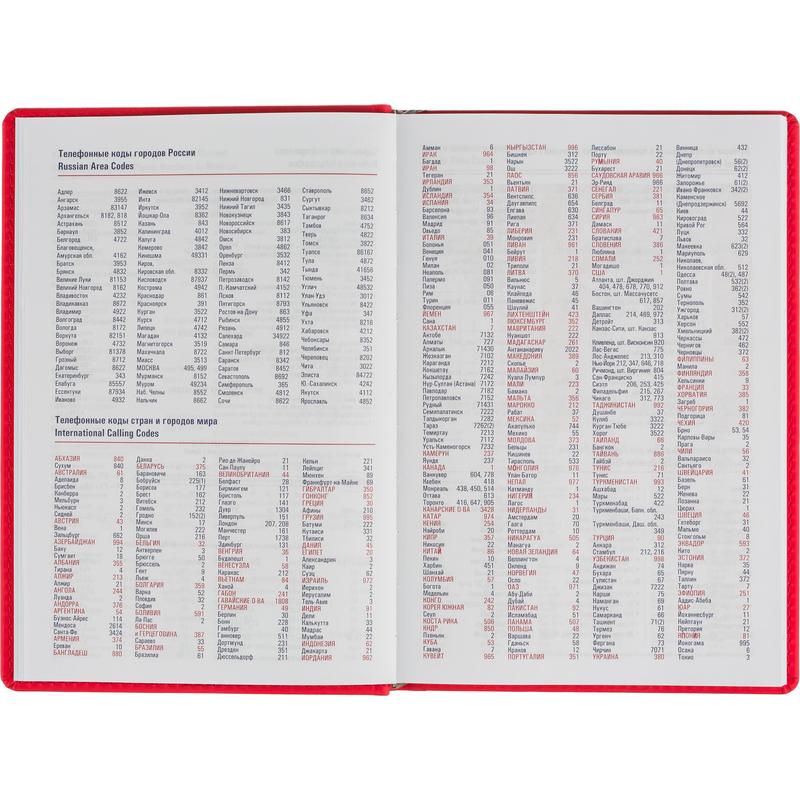 Телефонные коды городов России
Russian Area Codes
Адлер 8622
Ангарск 3955
Арзамас 83147
Архангельск 8182, 818
Астрахань 8512
Барнаул 3852
Белгород 4722
Благовещенск,
Амурская обл. 4162
Братск 3953
Брянск 4832
Великие Луки 81153
Великий Новгород 8162
Владивосток 4232
Владикавказ 8672
Владимир 4922
Волгоград 8442
Вологда 8172
Воркута 82151
Воронеж 4732
Выборг 81378
Грозный 8712
Дагомыс 8622
Екатеринбург 343
Елабуга 85557
Ессентуки 87934
Иваново 4932
Ижевск 3412
Инта 82145
Иркутск 3952
Йошкар-Ола 8362
Казань 843
Калининград 4012
Калуга 4842
Кемерово 3842
Кинешма 49331
Киров
Кировская обл. 8332
Кисловодск 87937
Кострома 4942
Краснодар 861
Красноярск 391
Курган 3522
Курск 4712
Липецк 4742
Магадан 4132
Магнитогорск 3519
Махачкала 8722
Миасс 3513
МОСКВА 495, 499
Мурманск 8152
Муром 49234
Наб. Челны 8552
Нальчик 8662
Нижневартовск 3466
Нижний Новгород 831
Нижний Тагил 3435
Новокузнецк 3843
Новороссийск 8617
Новосибирск 383
Омск 3812
Орел 4862
Оренбург 3532
Пенза 8412
Пермь 342
Петрозаводск 8142
П.-Камчатский 4152
Псков 8112
Пятигорск 8793
Ростов-на-Дону 863
Рыбинск 4855
Рязань 4912
Салехард 34922
Самара 846
Санкт-Петербург 812
Саранск 8342
Саратов 8452
Севастополь 8692
Симферополь 365
Смоленск 4812
Сочи 8622
Ставрополь 8652
Сургут 3462
Сыктывкар 8212
Таганрог 8634
Тамбов 4752
Тверь 4822
Томск 3822
Туапсе 86167
Тула 4872
Тында 41656
Тюмень 3452
Углич 48532
Улан Удэ 3012
Ульяновск 8422
Уфа 347
Ухта 8216
Хабаровск 4212
Чебоксары 8352
Челябинск 351
Череповец 8202
Чита 3022
Элиста 84722
Ю. Сахалинск 4242
Якутск 4112
Ярославль 4852
Телефонные коды стран и городов мира
International Calling Codes
АБХАЗИЯ 840
Сухум 840
АВСТРАЛИЯ 61
Аделаида 8
Брисбен 7
Канберра 2
Мельбурн 3
Ньюкасл 2
Сидней 2
АВСТРИЯ 43
Вена 1
Зальцбург 662
АЗЕРБАЙДЖАН 994
Баку 12
Сумгаит 18
АЛБАНИЯ 355
Тирана 4
АЛЖИР 213
Алжир 21
АНГОЛА 244
Луанда 2
АНДОРРА 376
АРГЕНТИНА 54
Буэнос Айрес 114
Мендоса 2614
Санта-Фе 3424
АРМЕНИЯ 374
Ереван 10
БАНГЛАДЕШ 880
Дакка 2
БЕЛАРУСЬ 375
Барановичи 163
Бобруйск 225(1)
Борисов 177
Брест 162
Витебск 212
Гомель 232
Гродно 152(2)
Минск 17
Могилев 222
Орша 216
БЕЛЬГИЯ 32
Антверпен 3
Брюгге 50
Брюссель 2
Гент 9
Льеж 4
БОЛГАРИЯ 359
Варна 52
Пловдив 32
София 2
БОЛИВИЯ 591
Ла Пас 2
БОСНИЯ
и ГЕРЦЕГОВИНА 387
Сараево 33
БРАЗИЛИЯ 55
Бразилиа 61
Рио-де-Жанейро 21
Сан Паулу 11
ВЕЛИКОБРИТАНИЯ 44
Белфаст 28
Бирмингем 121
Бристоль 117
Глазго 141
Дувр 1304
Ливерпуль 151
Лондон 207, 208
Манчестер 161
Перт 1738
Эдинбург 131
ВЕНГРИЯ 36
Будапешт 1
ВЕНЕСУЭЛА 58
Каракас 212
ВЬЕТНАМ 84
Ханой 4
ГАБОН 241
ГАВАЙСКИЕ О-ВА 1808
ГЕРМАНИЯ 49
Берлин 30
Бонн 228
Гамбург 40
Ганновер 511
Дортмунд 231
Дрезден 351
Дюссельдорф 211
Кельн 221
Лейпциг 341
Мюнхен 89
Франкфурт-на-Майне 69
ГИБРАЛТАР 350
ГОНКОНГ 852
ГРЕЦИЯ 30
Афины 210
ГРУЗИЯ 995
Батуми 222
Кутаиси 331
Тбилиси 32
ДАНИЯ 45
ЕГИПЕТ 20
Александрия 3
Каир 2
Суэц 62
ИЗРАИЛЬ 972
Иерихон 2
Иерусалим 2
Тель-Авив 3
ИНДИЯ 91
Дели 11
Калькутта 33
Мадрас 44
Мумбаи 22
ИНДОНЕЗИЯ 62
Джакарта 21
ИОРДАНИЯ 962
Амман 6
ИРАК 964
Багдад 1
ИРАН 98
Тегеран 21
ИРЛАНДИЯ 353
Дублин 1
ИСЛАНДИЯ 354
ИСПАНИЯ 34
Барселона 93
Валенсия 96
Мадрид 91
Овьедо 85
ИТАЛИЯ 39
Болонья 051
Венеция 041
Генуя 010
Милан 02
Неаполь 081
Палермо 091
Пиза 050
Рим 06
Турин 011
Флоренция 055
ЙЕМЕН 967
Сана 1
КАЗАХСТАН 7
Актобе 7132
Алматы 727
Аркалык 71430
Жезказган 7102
Кокшетау 7162
Кызылорда 7242
Нур-Султан (Астана) 7172
Павлодар 7182
Петропавловск 7152
Рудный 71431
Семипалатинск 7222
Талдыкорган 7282
Тараз 7262(2)
Темиртау 7213
Уральск 7112
Усть-Каменогорск 7232
КАМЕРУН 237
КАНАДА 1
Ванкувер 604, 778
Квебек 418
Монреаль 438, 450, 514
Оттава 613
Торонто 416, 647, 905
КАНАРСКИЕ О-ВА 3428
КАТАР 974
КЕНИЯ 254
Найроби 20
КИПР 357
Никосия 22
КИТАЙ 86
Пекин 10
Харбин 451
Шанхай 21
КОЛУМБИЯ 57
Богота 1
Медельин 4
КОНГО 242
КОРЕЯ ЮЖНАЯ 82
Сеул 2
КОСТА РИКА 506
КНДР 850
Пхеньян 2
КУБА 53
Гавана 7
КУВЕЙТ 965
КЫРГЫЗСТАН 996
Бишкек 312
Нарын 3522
Ош 3222
ЛАОС 856
Вьентьян 21
ЛАТВИЯ 371
Вентспилс 636
Даугавпилс 654
Елгава 630
Лиепая 634
Рига 671
ЛИБЕРИЯ 231
Монровия
ЛИВАН 961
Бейрут 1
ЛИВИЯ 218
Триполи 21
ЛИТВА 370
Вильнюс 5
Каунас 37
Клайпеда 46
Паневежис 45
Шауляй 41
ЛИХТЕНШТЕЙН 423
ЛЮКСЕМБУРГ 352
МАВРИТАНИЯ 222
Нуакшот
МАДАГАСКАР 261
Антананариву 2022
МАКЕДОНИЯ 389
Скопье 2
МАЛАЙЗИЯ 60
Куала Лумпур 3
МАЛИ 223
Бамако 2
МАЛЬТА 356
МАРОККО 212
Рабат 37
МЕКСИКА 52
Акапулько 744
Мехико 55
МОЛДОВА 373
Бельцы 231
Кишинев 22
МОНГОЛИЯ 976
Улан-Батор 11
НЕПАЛ 977
Катманду 1
НИГЕРИЯ 234
Лагос 1
НИДЕРЛАНДЫ 31
Амстердам 20
Гаага 70
Роттердам 10
НИКАРАГУА 505
Манагуа 2
НОВАЯ ЗЕЛАНДИЯ 64
Веллингтон 4
Окленд 9
НОРВЕГИЯ 47
Осло 22
ОАЭ 971
Абу-Даби 2
Дубай 4
ПАКИСТАН 92
Исламабад 51
ПАНАМА 507
ПОЛЬША 48
Варшава 22
Гданьск 58
Краков 12
ПОРТУГАЛИЯ 351
Лиссабон 21
Порту 22
РУМЫНИЯ 40
Бухарест 21
САУДОВСКАЯ АРАВИЯ 966
Эр-Рияд 966
СЕНЕГАЛ 221
СЕРБИЯ 381
Белград 11
СИНГАПУР 65
СИРИЯ 963
Дамаск 11
СЛОВАКИЯ 421
Братислава 7
СЛОВЕНИЯ 386
Любляна 1
СОМАЛИ 252
Могадишо 1
США 1
Атланта, шт. Джорджия
404, 478, 678, 770, 912
Бостон, шт. Массачусетс
617, 857
Вашингтон 202
Даллас 214, 469, 972
Детройт 313
Канзас-Сити, шт. Канзас
Кливленд, шт. Висконсин 920
Лас-Вегас 775
Лос-Анджелес 213, 310
Нью-Йорк 212, 347, 646, 718
Ричмонд, шт. Вирджиния 804
Сан Франциско 415
Сиэтл 206, 253, 425
Филадельфия 215, 267
Чикаго 312, 773
ТАДЖИКИСТАН 992
Душанбе 37
Куляб 3322
Курган Тюбе 3222
Хорог 3522
ТАИЛАНД 66
Бангкок 2
ТАЙВАНЬ 886
Тайбэй 2
ТУНИС 216
Тунис 71
ТУРКМЕНИСТАН 993
Ашхабад 12
Мары 522
Туркменабад 422
Туркменбаши, Балк. обл.
243
Туркменбаши, Даш. обл.
ТУРЦИЯ 90
Анкара 312
Стамбул 212, 216
УЗБЕКИСТАН 998
Андижан 74
Бухара 65
Гулистан 67
Джизак 7222
Карши 75
Наманган 69
Нукус 61
Самарканд 66
Ташкент 71(2)
Термез 76
Ургенч 62
Фергана 73
Чирчик 7071
УКРАИНА 380
Винница 432
Днепр
(Днепропетровск) 56(2)
Донецк 62(2)
Житомир 412
Запорожье 61(2)
Ивано Франковск 342(2)
Каменское
(Днепродзержинск) 5692
Киев 44
Кировоград 522
Кривой Рог 564
Луцк 332
Львов 32
Макеевка 623(2)
Мариуполь 629
Николаев,
Николаевская обл. 512
Одесса 48(2), 487
Полтава 532(2)
Ровно 362(2)
Сумы 542
Тернополь 352
Ужгород 312(2)
Харьков 57
Херсон 552
Хмельницкий 382(2)
Черкассы 472
Чернигов 462
Черновцы 372
ФИЛИППИНЫ 63
Манила 2
ФИНЛЯНДИЯ 358
Хельсинки 9
ФРАНЦИЯ 33
ХОРВАТИЯ 385
Загреб 1
ЧЕРНОГОРИЯ 382
Подгорица 81
ЧЕХИЯ 420
Брно 53, 54
Карловы Вары 35
Прага 2
ЧИЛИ 56
Вальпараисо 32
Сантьяго 2
ШВЕЙЦАРИЯ 41
Базель 61
Берн 31
Женева 22
Лозанна 21
Цюрих 1
ШВЕЦИЯ 46
Гетеборг 31
Мальме 40
Стокгольм 8
ЭКВАДОР 593
Кито 2
ЭСТОНИЯ 372
Нарва 35
Пярну 44
Таллин 372
Тарту 7
ЭФИОПИЯ 251
Аддис-Абеба 1
ЮАР 27
Йоханнесбург 11
Кейптаун 21
Претория 12
ЯПОНИЯ 81
Йокогама 995
Осака 6
Токио 3